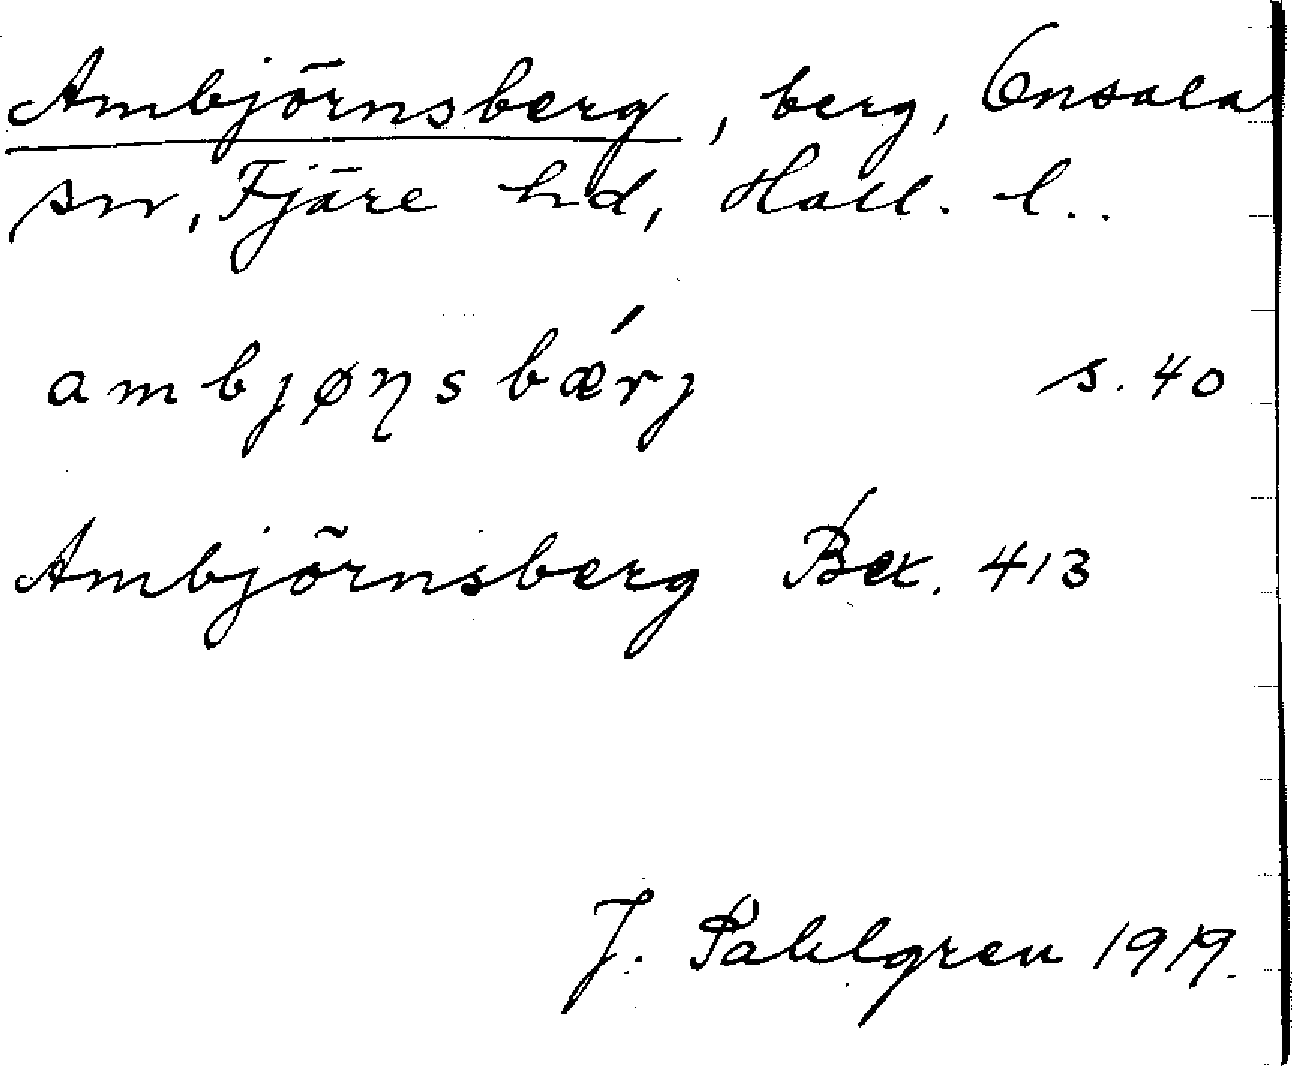 Ambjörnsberg, berg, Onsala
sn, Fjäre hd, Hall. l..
ambjøņsbǽrj s. 40
Ambjörnsberg Bex. 413
J. Sahlgren 1919.